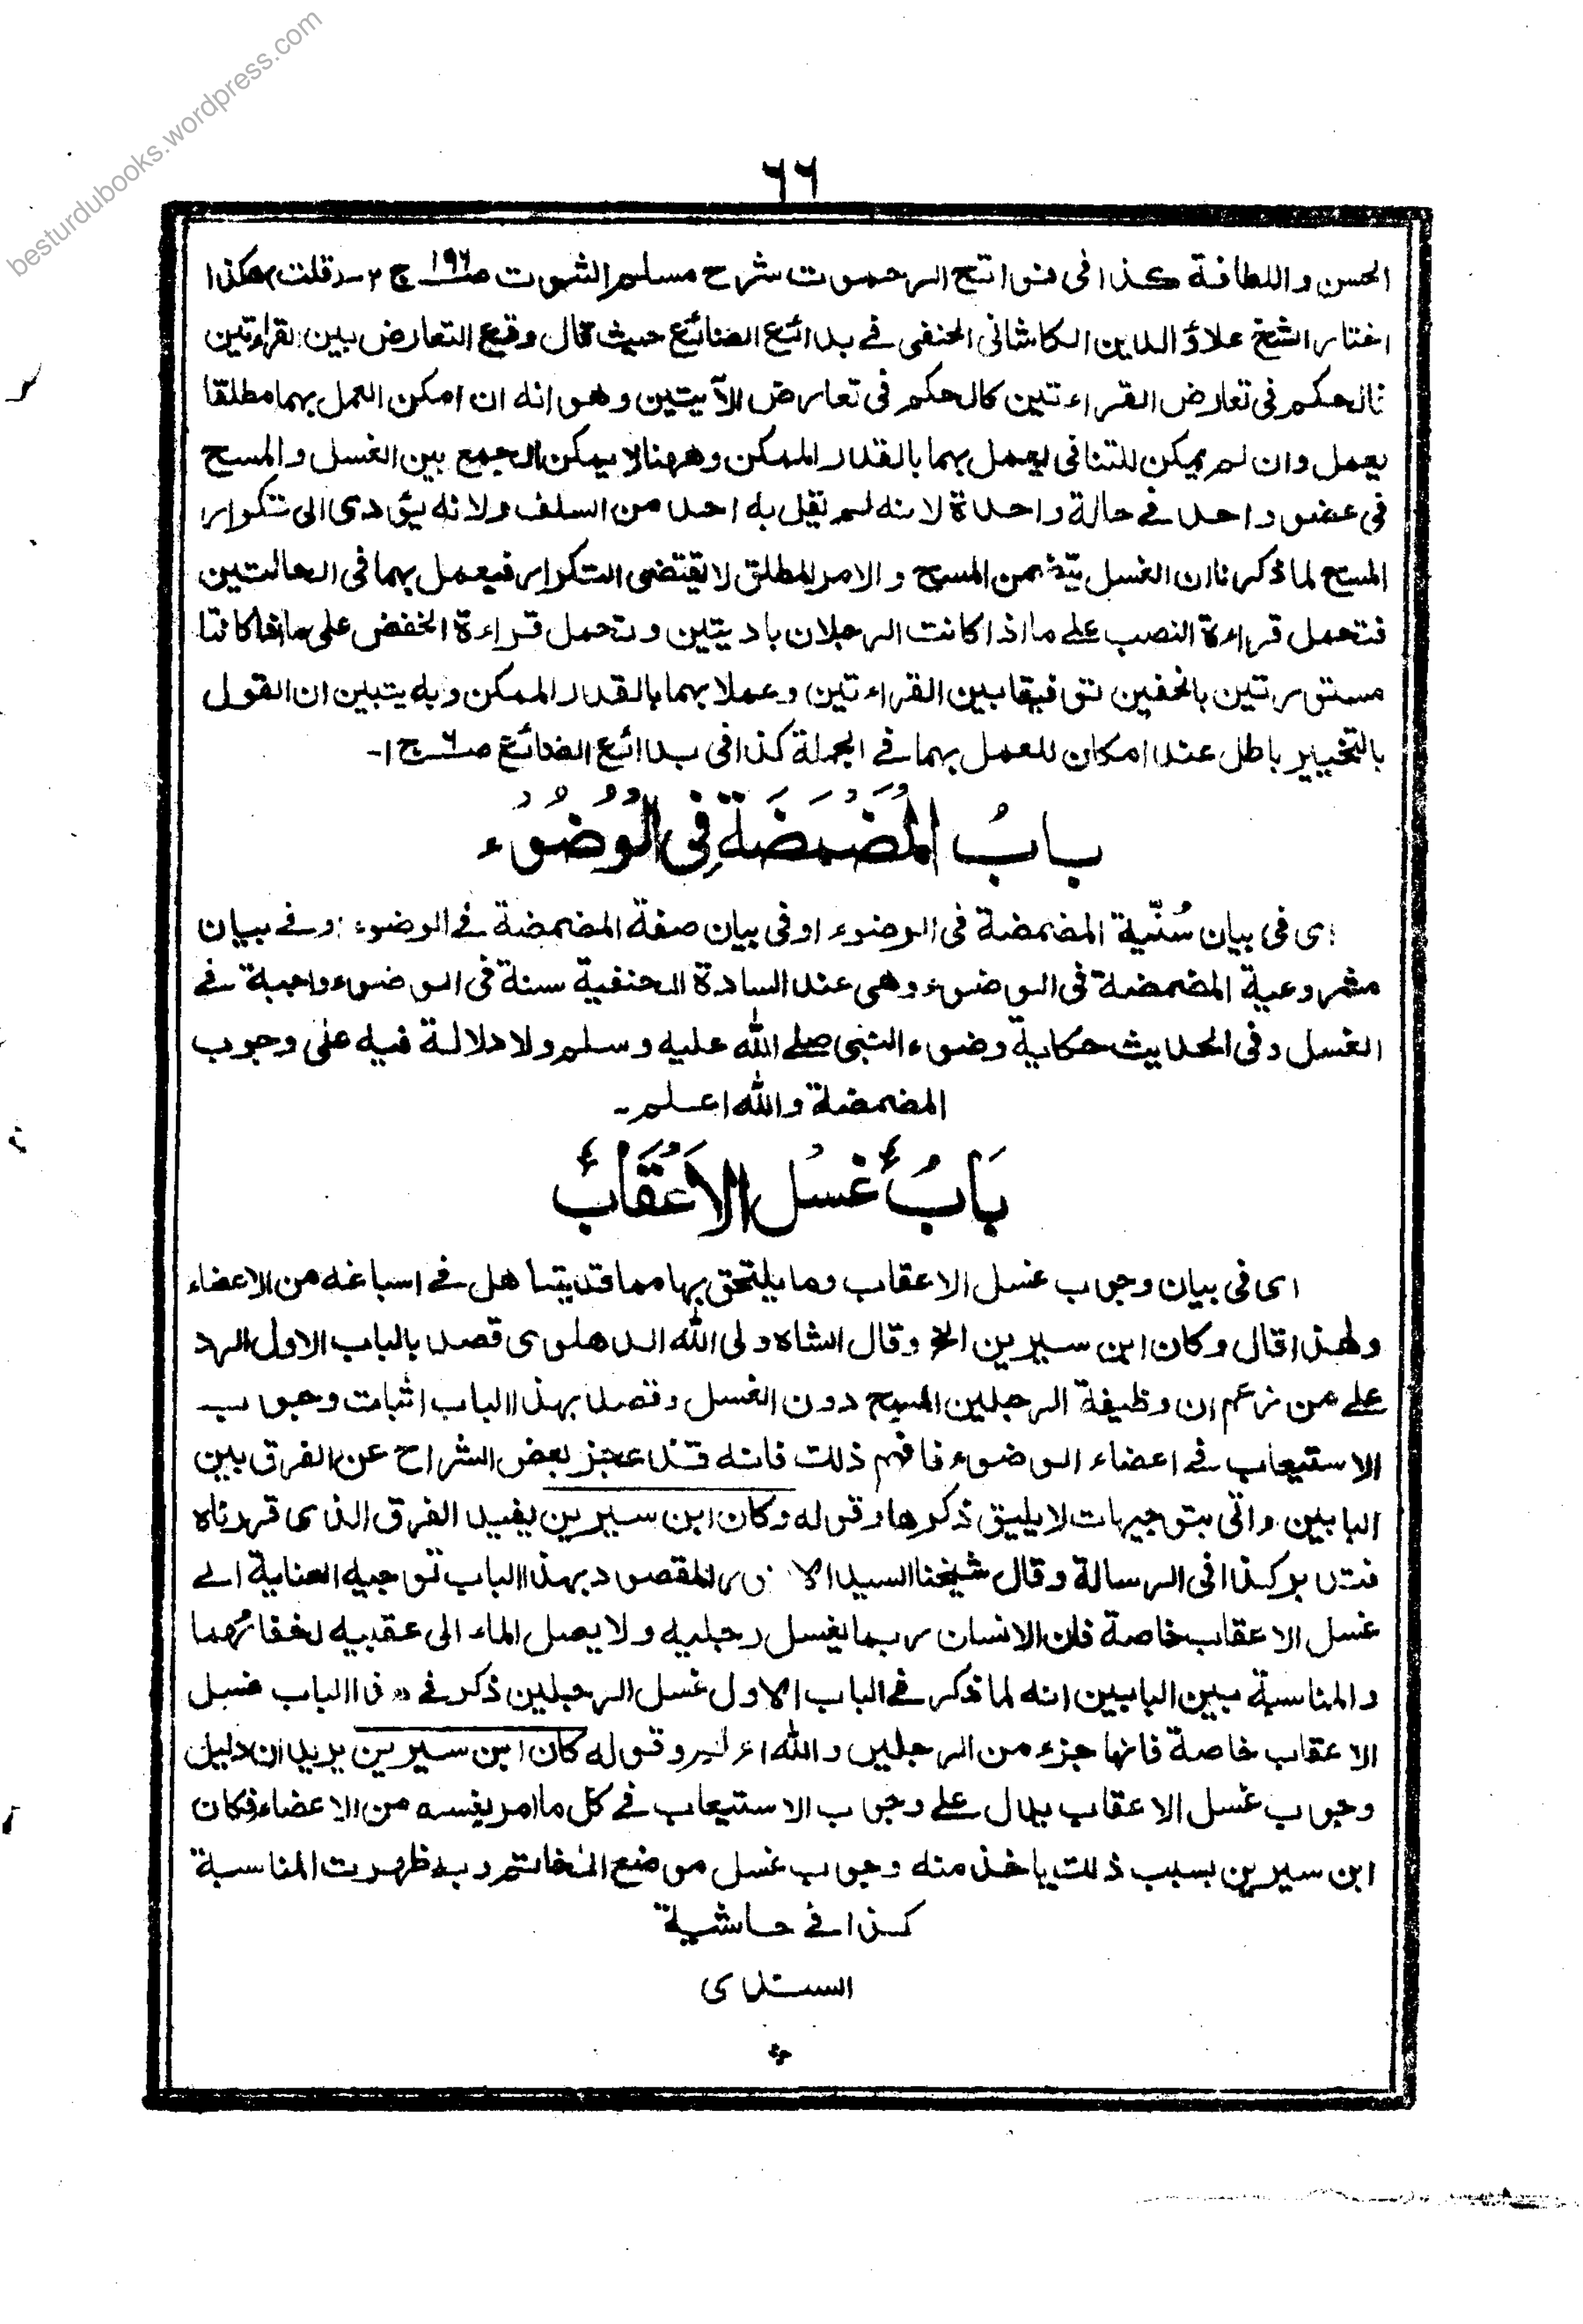 besturdubooks.wordpress.com
٦٦
الحسن واللطافة كذا فى فواتح الرحموت شرح مسلم الثبوت صـ١٩٦ ج ٢ـ قلت هكذا
اختار الشيخ علاؤ الدين الكاشانى الحنفى فے بدائع الصنائع حيث قال وقع التعارض بين القراءتين
فالحكم فى تعارض القراءتين كالحكم فى تعارض الآيتين وهو انه ان امكن العمل بهما مطلقا
يعمل وان لم يمكن للتنافى يعمل بهما بالقدر الممكن وههنا لا يمكن الجمع بين الغسل والمسح
فى عضو واحد فے حالة واحدة لانه لم يقل به احد من السلف ولانه يؤدى الى تكرار
المسح لما ذكرنا ان الغسل يتضمن المسح والامر المطلق لا يقتضى التكرار فيعمل بهما فى الحالتين
فتحمل قراءة النصب علے ما اذا كانت الرجلان باديتين وتحمل قراءة الخفض على ما اذا كانتا
مستورتين بالخفين توفيقا بين القراءتين وعملا بهما بالقدر الممكن وبه يتبين ان القول
بالتخيير باطل عند امكان للعمل بهما فے الجملة كذا فى بدائع الصنائع صـ٦ ج ١ـ
بابُ المُضْمَضَةِ فِى الْوُضُوْء
اى فى بيان سُنّية المضمضة فى الوضوء او فى بيان صفة المضمضة فے الوضوء وفے بيان
مشروعية المضمضة فى الوضوء وهى عند السادة الحنفية سنة فى الوضوء واجبة فے
الغسل وفى الحديث حكاية وضوء النبى صلے الله عليه وسلم ولا دلالة فيه على وجوب
المضمضة والله اعلم ـ
بَابُ غَسْلِ الْاَعْقَابِ
اى فى بيان وجوب غسل الاعقاب وما يلتحق بها مما قد يتساهل فے اسباغه من الاعضاء
ولهذا قال وكان ابن سيرين الخ وقال الشاه ولى الله الدهلوى قصد بالباب الاول الرد
علے من زعم ان وظيفة الرجلين المسح دون الغسل وقصد بهذا الباب اثبات وجوب
الاستيعاب فے اعضاء الوضوء فافهم ذلك فانه قد عجز بعض الشراح عن الفرق بين
البابين واتى بتوجيهات لا يليق ذكرها وقوله وكان ابن سيرين يفيد الفرق الذى قررناه
فتدبر كذا فى الرسالة وقال شيخنا السيد الانور المقصود بهذا الباب توجيه العناية الے
غسل الاعقاب خاصة فان الانسان ربما يغسل رجليه ولا يصل الماء الى عقبيه لخفائهما
والمناسبة بين البابين انه لما ذكر فے الباب الاول غسل الرجلين ذكر فے هذا الباب غسل
الاعقاب خاصة فانها جزء من الرجلين والله اعلم وقوله كان ابن سيرين يريد ان دليل
وجوب غسل الاعقاب يدل علے وجوب الاستيعاب فے كل ما امر بغسله من الاعضاء فكان
ابن سيرين بسبب ذلك ياخذ منه وجوب غسل موضع الخاتم وبه ظهرت المناسبة
كذا فے حاشية
السندى